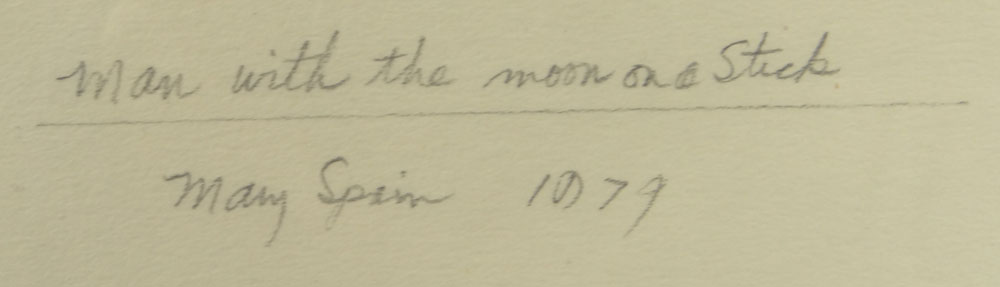 Man with the moon on a Stick
Mary Spain 1979